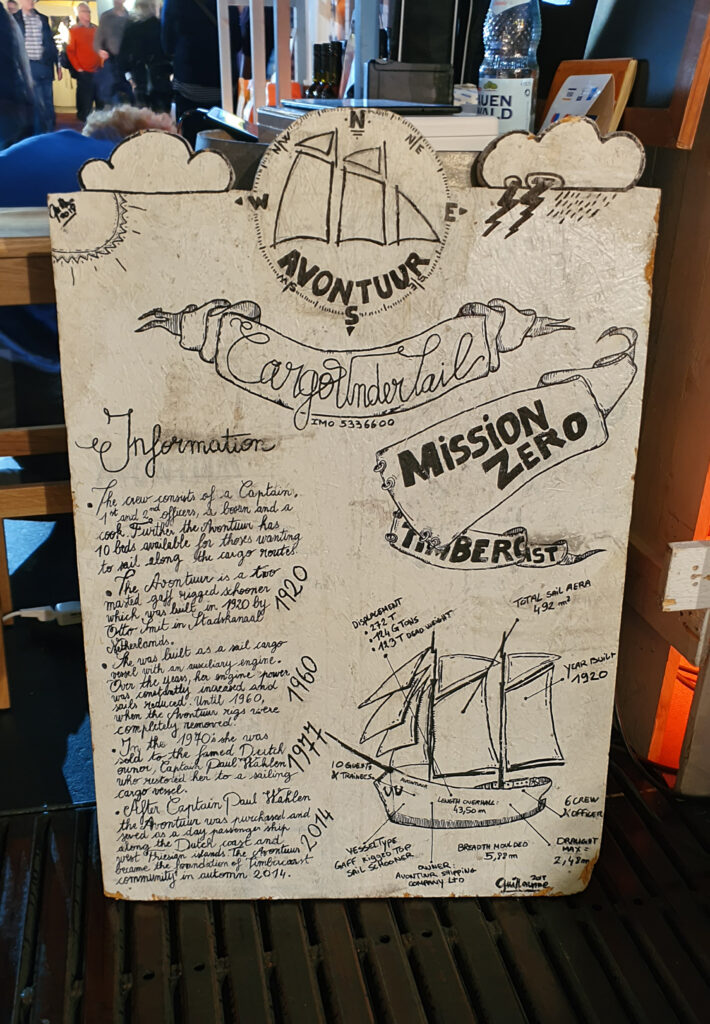 N
NW
NE
W
E
AVONTUUR
SW
SE
S
Cargo Under Sail
IMO 5336600
MISSION
ZERO
TIMBERCOAST
Information
• The crew consists of a Captain,
1st and 2nd officers, a bosn and a
cook. Further the Avontuur has
10 beds available for thoses wanting
to sail along the cargo routes.
• The Avontuur is a two
masted gaff rigged schooner
which was built in 1920 by
Otto Smit in Stadskanaal
Netherlands.
1920
• She was built as a sail cargo
vessel with an auxiliary engine.
Over the years, her engine power
was constantly increased and
sails reduced. Until 1960,
when the Avontuur rigs were
completely removed.
1960
• In the 1970's she was
sold to the famed Dutch
owner, Captain Paul Wahlen
who restored her to a sailing
cargo vessel.
1977
• After Captain Paul Wahlen
the Avontuur was purchased and
served as a day passenger ship
along the Dutch coast and
west Friesian islands. The Avontuur
became the foundation of Timbercoast
community in autumn 2014.
2014
DISPLACEMENT
272 T
• 124 G TONS
• 123 T DEAD WEIGHT
TOTAL SAIL AERA
492 m²
YEAR BUILT
1920
10 GUESTS
& TRAINEES
AVONTUUR
LENGTH OVERHALL:
43,50 m
6 CREW
& OFFICER
VESSEL TYPE
GAFF RIGGED TOP
SAIL SCHOONER
BREADTH MOULDED
5,88 m
DRAUGHT
MAX =
2,48 m
OWNER:
AVONTUUR SHIPPING
COMPANY LTD
Guillaume